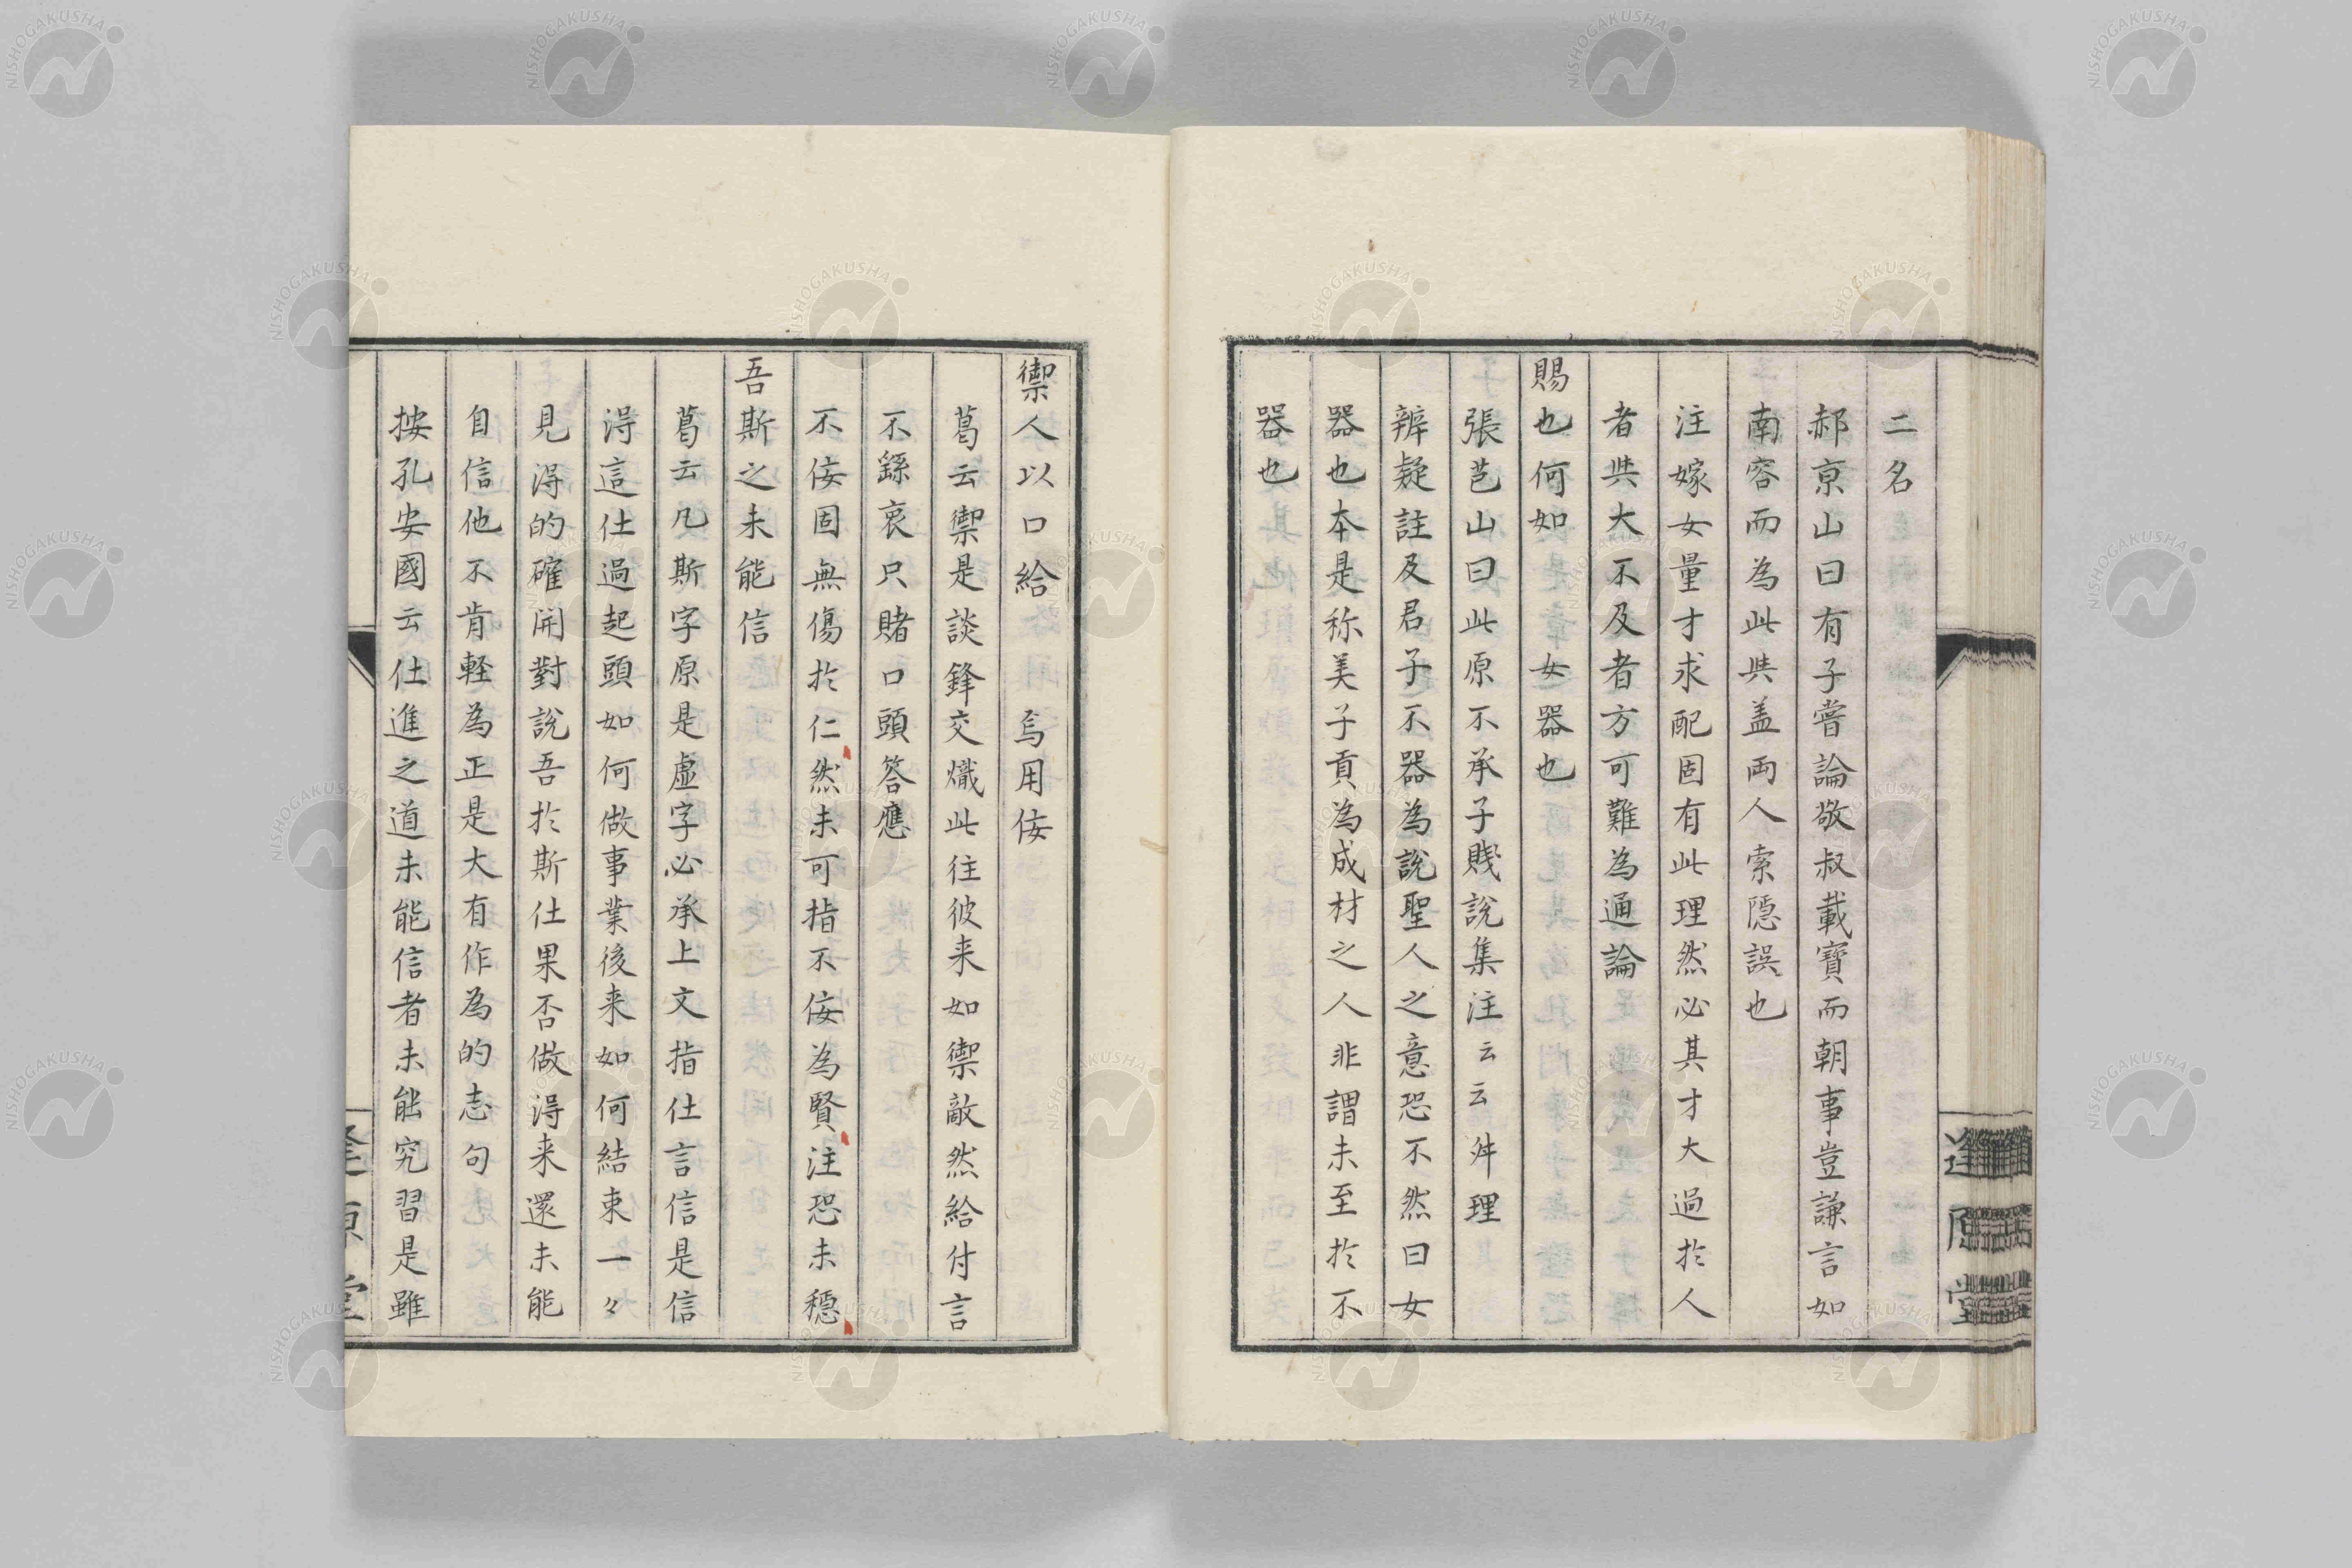 二名
郝京山曰有子嘗論敬叔載寶而朝事豈謙言如
南容而為此㪽盖両人索隠誤也
注嫁女量才求配固有此理然必其才大過於人
者㪽大不及者方可難為通論
賜也何如 女器也
張芑山曰此原不承子賤說集注云云舛理
辨疑註及君子不器為說聖人之意恐不然曰女
器也本是称美子貢為成材之人非謂未至於不
器也
禦人以口給 焉用佞
葛云禦是談鋒交熾此往彼来如禦敵然給付言
不繇衷只賭口頭答應
不佞固無傷於仁然未可指不佞為賢注恐未穏
吾斯之未能信
葛云凡斯字原是虚字必承上文指仕言信是信
得這仕過起頭如何做事業後来如何結束一々
見得的確開對說吾於斯仕果否做得来還未能
自信他不肯軽為正是大有作為的志句
按孔安國云仕進之道未能信者未能究習是雖
逢原堂